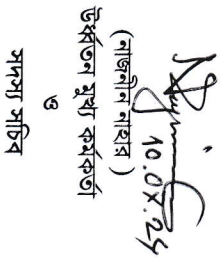 10.07.24
(নাজনীন নাহার)
উর্ধ্বতন মুখ্য কর্মকর্তা
ও
সদস্য সচিব